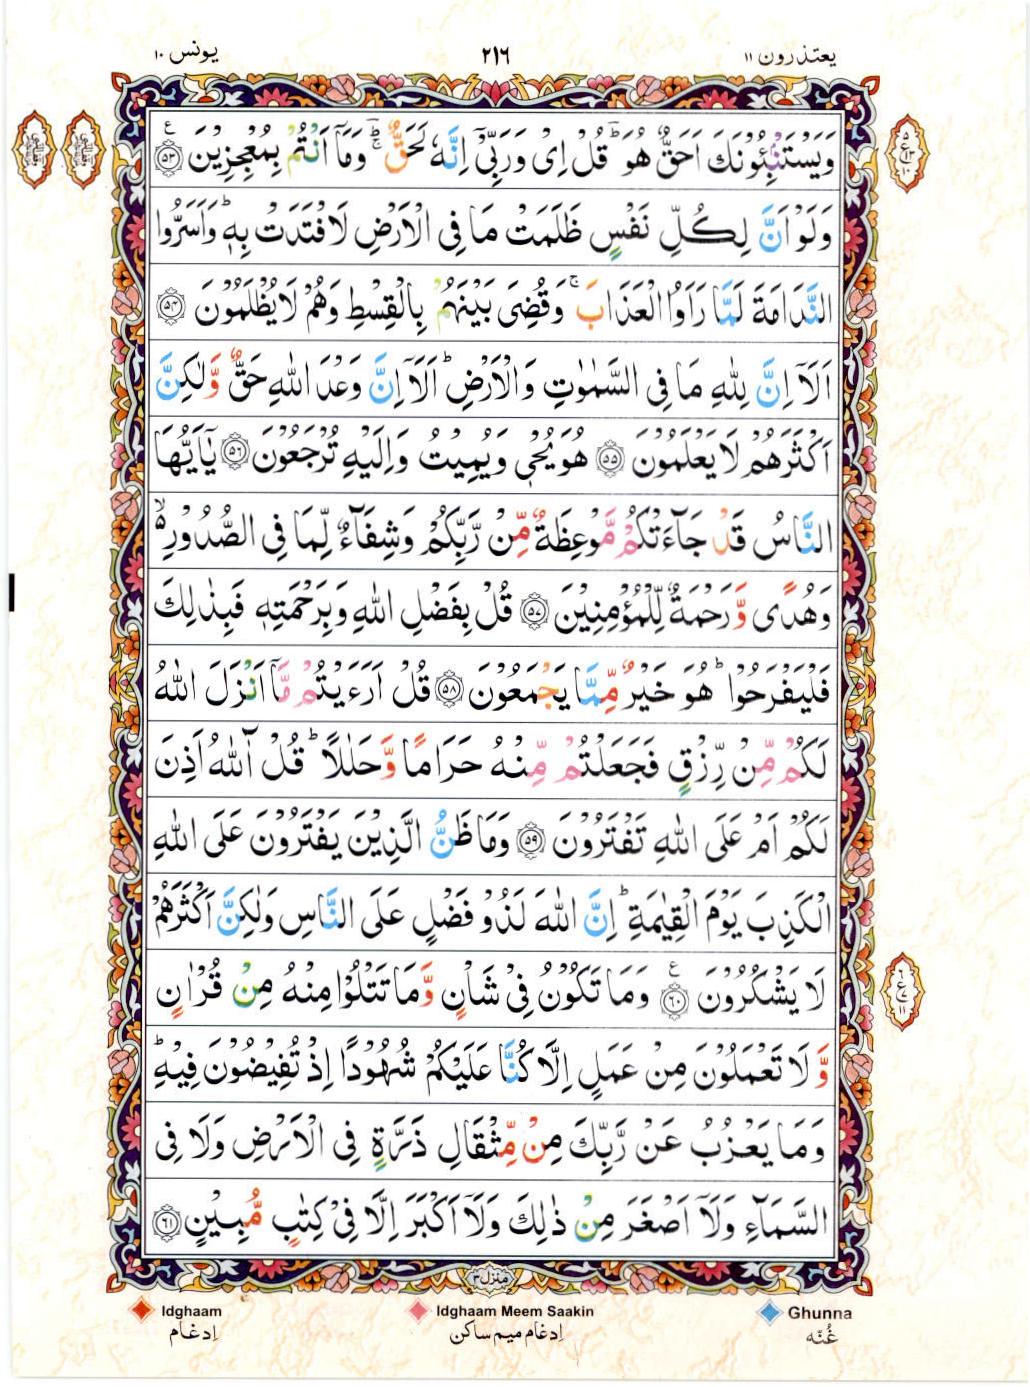 یعتذرون ۱۱
۲۱۶
یونس ۱۰
وَيَسْتَنْۢبِـُٔوْنَكَ اَحَقٌّ هُوَ ؕ قُلْ اِیْ وَرَبِّیْۤ اِنَّهٗ لَحَقٌّ ؔؕ وَمَاۤ اَنْتُمْ بِمُعْجِزِيْنَ ﴿۵۳﴾ ع
وَلَوْ اَنَّ لِكُلِّ نَفْسٍ ظَلَمَتْ مَا فِی الْاَرْضِ لَافْتَدَتْ بِهٖ ؕ وَاَسَرُّوا
النَّدَامَةَ لَمَّا رَاَوُا الْعَذَابَ ۚ وَقُضِیَ بَيْنَهُمْ بِالْقِسْطِ وَهُمْ لَا يُظْلَمُوْنَ ﴿۵۴﴾
اَلَاۤ اِنَّ لِلّٰهِ مَا فِی السَّمٰوٰتِ وَالْاَرْضِ ؕ اَلَاۤ اِنَّ وَعْدَ اللّٰهِ حَقٌّ وَّلٰكِنَّ
اَكْثَرَهُمْ لَا يَعْلَمُوْنَ ﴿۵۵﴾ هُوَ يُحْیٖ وَيُمِيْتُ وَاِلَيْهِ تُرْجَعُوْنَ ﴿۵۶﴾ يٰۤاَيُّهَا
النَّاسُ قَدْ جَآءَتْكُمْ مَّوْعِظَةٌ مِّنْ رَّبِّكُمْ وَشِفَآءٌ لِّمَا فِی الصُّدُوْرِ ۙ۬
وَهُدًی وَّرَحْمَةٌ لِّلْمُؤْمِنِيْنَ ﴿۵۷﴾ قُلْ بِفَضْلِ اللّٰهِ وَبِرَحْمَتِهٖ فَبِذٰلِكَ
فَلْيَفْرَحُوْا ؕ هُوَ خَيْرٌ مِّمَّا يَجْمَعُوْنَ ﴿۵۸﴾ قُلْ اَرَءَيْتُمْ مَّاۤ اَنْزَلَ اللّٰهُ
لَكُمْ مِّنْ رِّزْقٍ فَجَعَلْتُمْ مِّنْهُ حَرَامًا وَّحَلٰلًا ؕ قُلْ آٰللّٰهُ اَذِنَ
لَكُمْ اَمْ عَلَی اللّٰهِ تَفْتَرُوْنَ ﴿۵۹﴾ وَمَا ظَنُّ الَّذِيْنَ يَفْتَرُوْنَ عَلَی اللّٰهِ
الْكَذِبَ يَوْمَ الْقِيٰمَةِ ؕ اِنَّ اللّٰهَ لَذُوْ فَضْلٍ عَلَی النَّاسِ وَلٰكِنَّ اَكْثَرَهُمْ
لَا يَشْكُرُوْنَ ﴿۶۰﴾ ع وَمَا تَكُوْنُ فِیْ شَاْنٍ وَّمَا تَتْلُوْا مِنْهُ مِنْ قُرْاٰنٍ
وَّلَا تَعْمَلُوْنَ مِنْ عَمَلٍ اِلَّا كُنَّا عَلَيْكُمْ شُهُوْدًا اِذْ تُفِيْضُوْنَ فِيْهِ ؕ
وَمَا يَعْزُبُ عَنْ رَّبِّكَ مِنْ مِّثْقَالِ ذَرَّةٍ فِی الْاَرْضِ وَلَا فِی
السَّمَآءِ وَلَاۤ اَصْغَرَ مِنْ ذٰلِكَ وَلَاۤ اَكْبَرَ اِلَّا فِیْ كِتٰبٍ مُّبِيْنٍ ﴿۶۱﴾
منزل ۳
Idghaam
Idghaam Meem Saakin
Ghunna
اِدغام
اِدغام میم ساکن
غُنّه